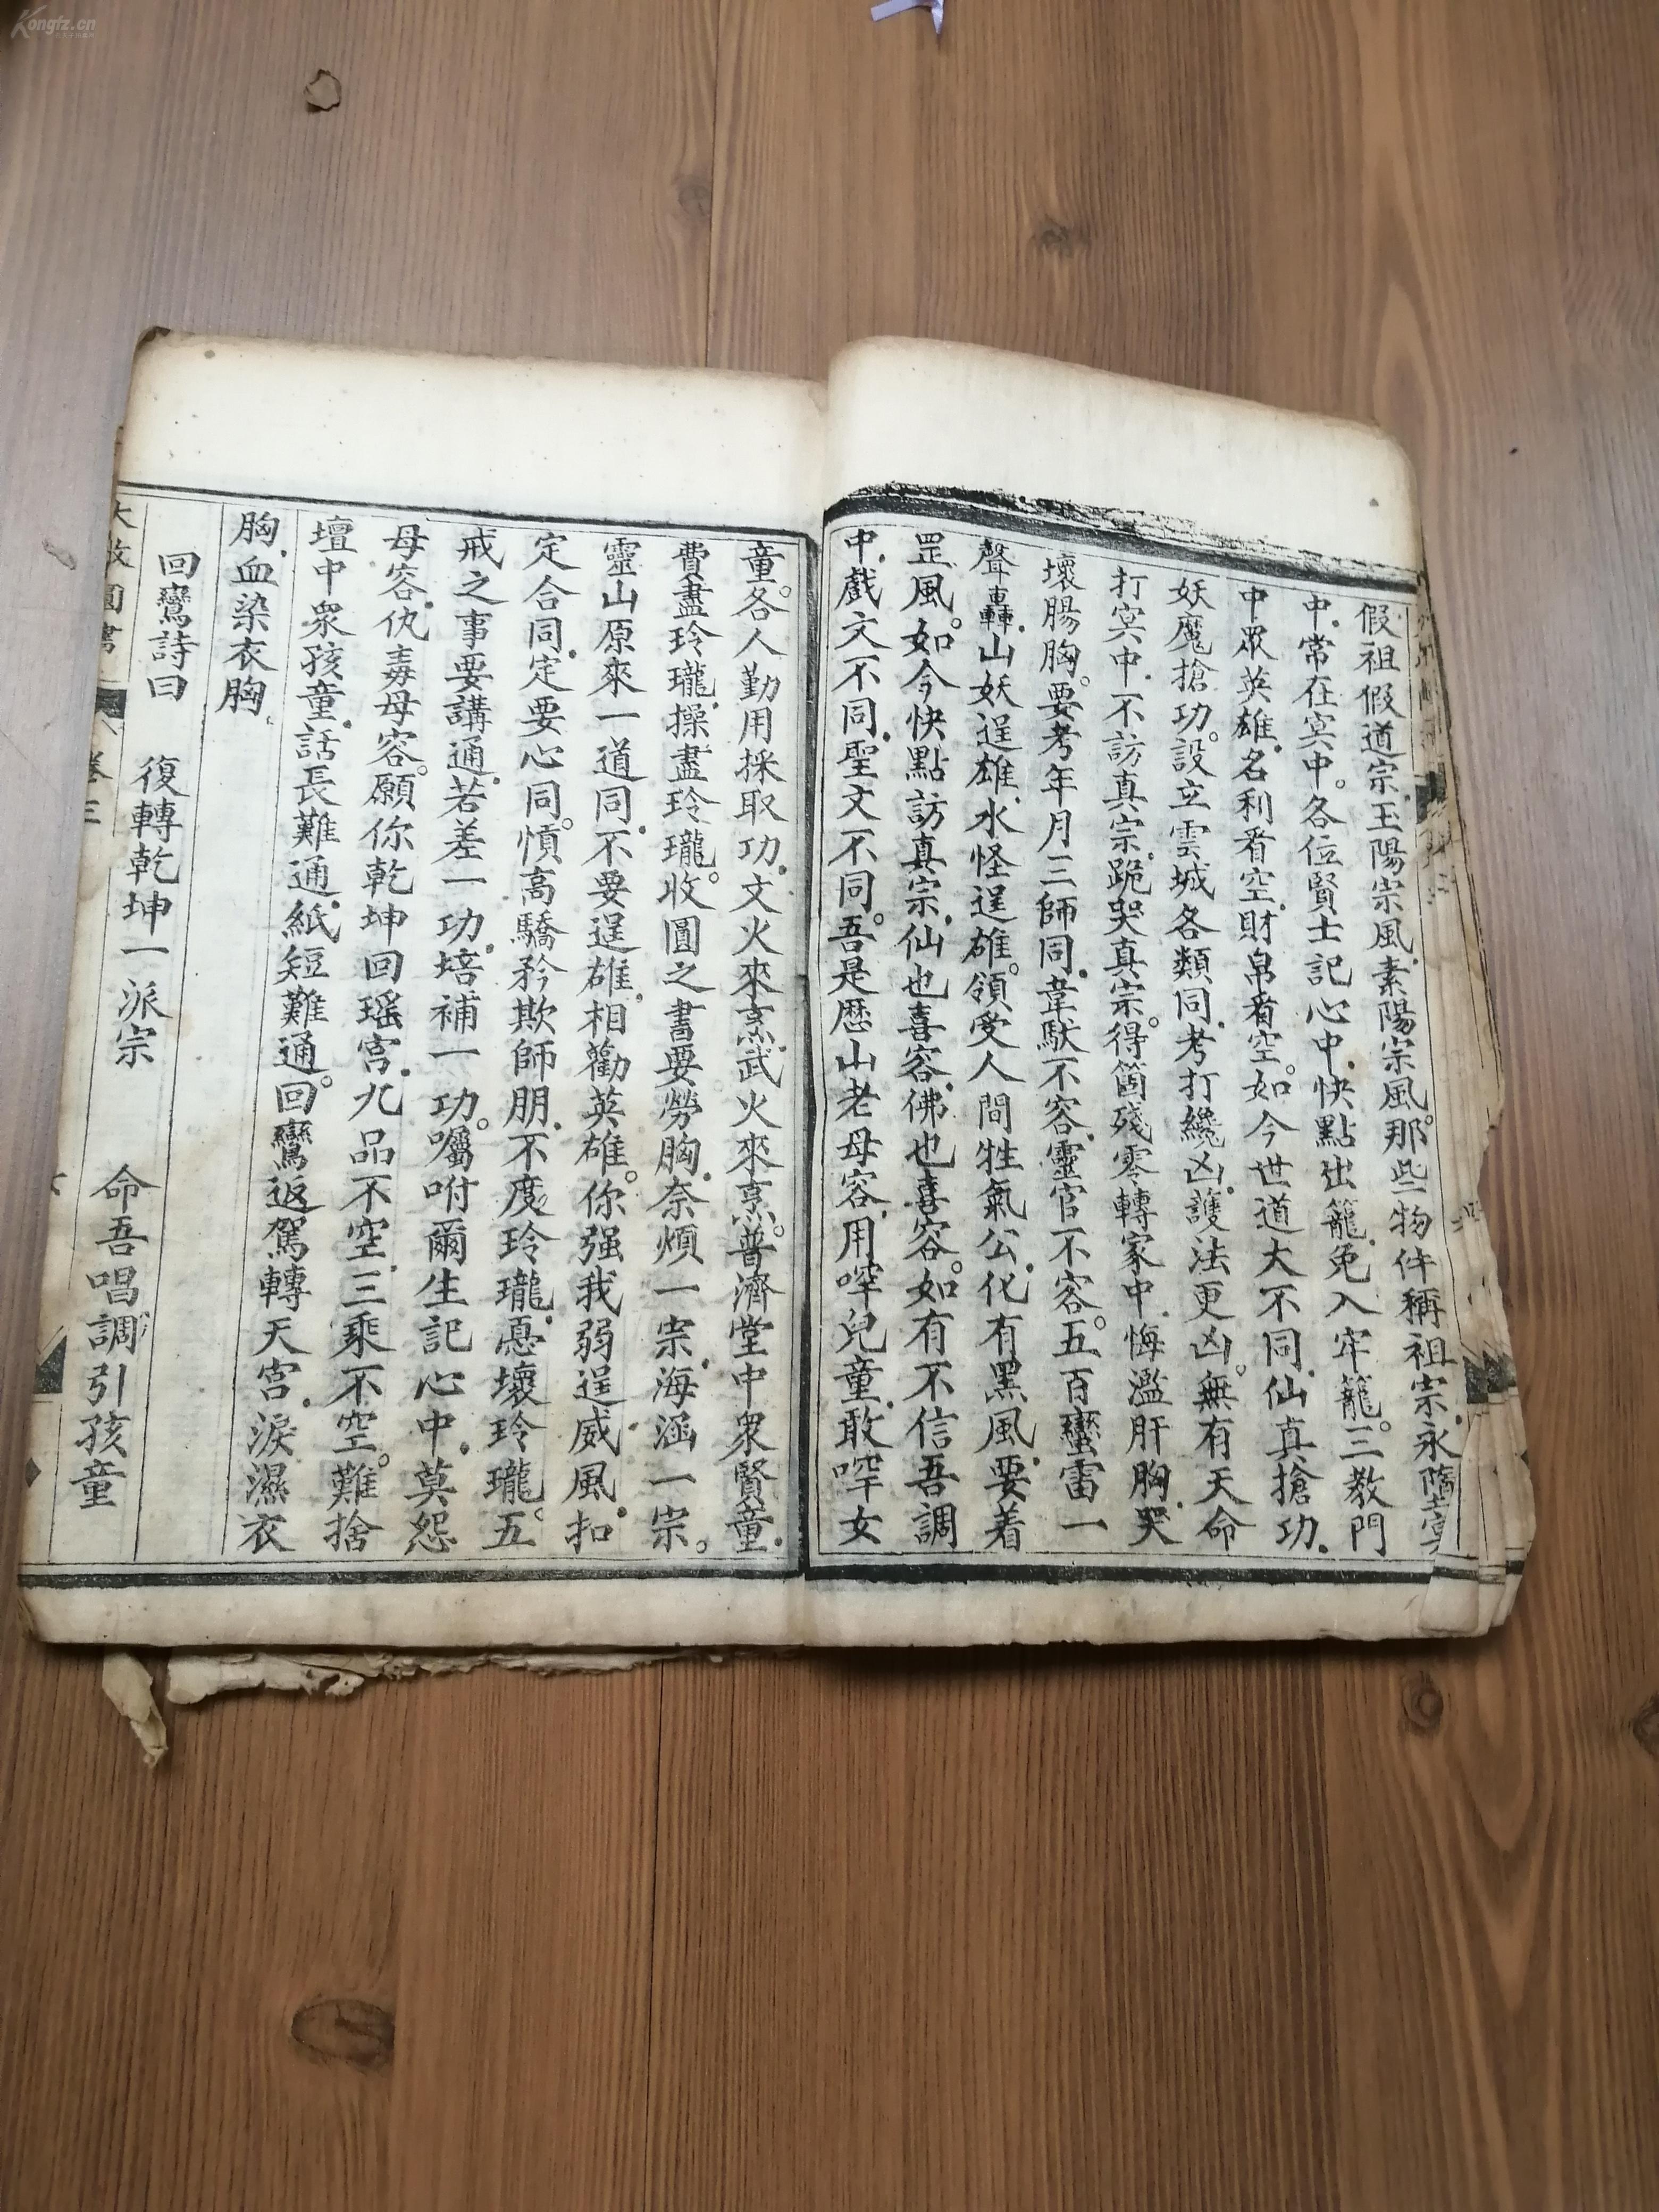 Kongfz.cn
假祖假道宗玉陽宗風素陽宗風那些物件稱祖宗永墮冥
中常在冥中各位賢士記心中快點出籠免入牢籠三教門
中眾英雄名利看空財帛看空如今世道大不同仙真搶功
妖魔搶功設立雲城各類同考打纔凶護法更凶無有天命
打冥中不訪真宗跪哭真宗得箇殘零轉家中悔濫肝胸哭
壞腸胸要考年月三師同韋馱不容靈官不容五百蠻雷一
聲轟山妖逞雄水怪逞雄領受人間牲氣公化有黑風要着
罡風如今快點訪真宗仙也喜容佛也喜容如有不信吾調
中戲文不同聖文不同吾是歷山老母容用啌兒童敢啌女
童各人勤用採取功文火來烹武火來烹普濟堂中衆賢童
費盡玲瓏操盡玲瓏收圓之書要勞胸奈煩一宗海涵一宗
靈山原來一道同不要逞雄相勸英雄你强我弱逞威風扣
定合同定要心同憤高驕矜欺師朋不度玲瓏惪壞玲瓏五
戒之事要講通若差一功培補一功囑咐爾生記心中莫怨
母容仇毒母容願你乾坤回瑶宫九品不空三乘不空難捨
壇中衆孩童話長難通紙短難通回鸞返駕轉天宫淚濕衣
胸血染衣胸
回鸞詩曰 復轉乾坤一派宗 命吾唱調引孩童
大收圓書 卷三